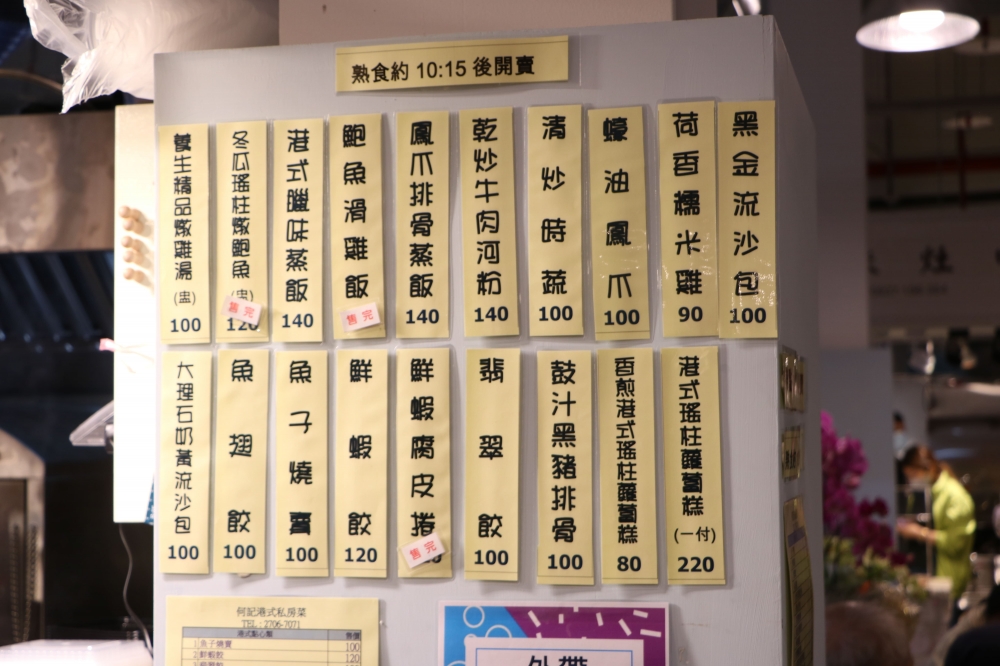 熟食約 10:15 後開賣
黑金流沙包 100
荷香糯米雞 90
蠔油鳳爪 100
清炒時蔬 100
乾炒牛肉河粉 140
鳳爪排骨蒸飯 140
鮑魚滑雞飯
售完
港式臘味蒸飯 140
冬瓜瑤柱燉鮑魚 (盅) 120
售完
養生精品燉雞湯 (盅) 100
港式瑤柱蘿蔔糕 (一付) 220
香煎港式瑤柱蘿蔔糕 80
豉汁黑豬排骨 100
翡翠餃 100
鮮蝦腐皮捲
售完
鮮蝦餃 120
魚子燒賣 100
魚翅餃 100
大理石奶黃流沙包 100
何記港式私房菜
TEL : 2706-7071
港式點心類 售價
1)魚子燒賣 100
2)鮮蝦餃 120
外帶